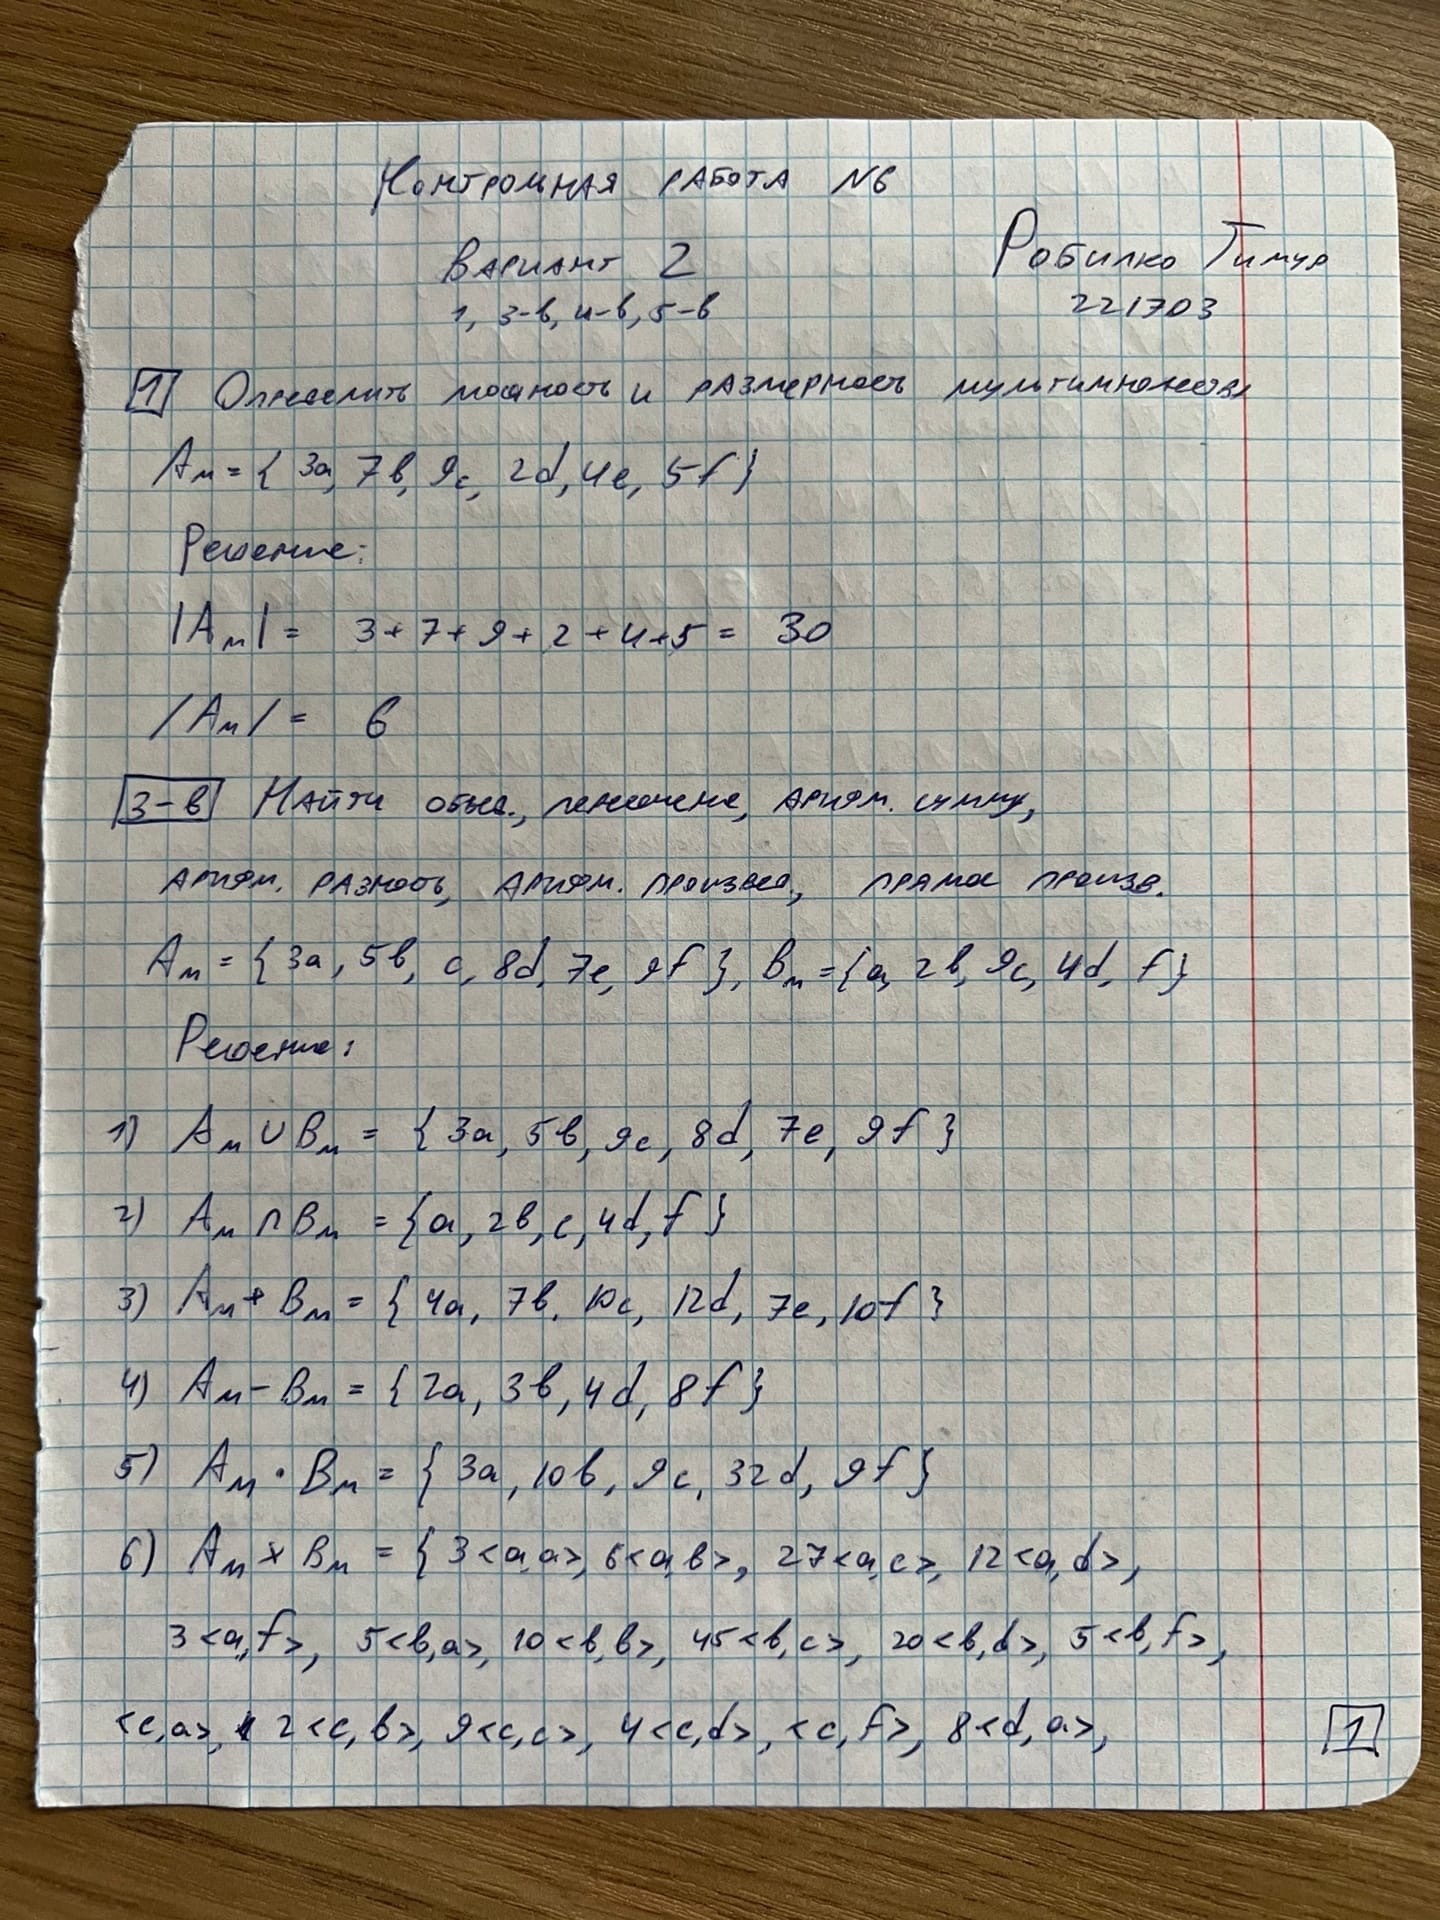 Контрольная работа №6
Вариант 2
Робилко Тимур
1, 3-в, 4-в, 5-в
221703
1 Определить мощность и размерность мультимножества
Aм = { 3a, 7b, 9c, 2d, 4e, 5f }
Решение:
|Aм| = 3 + 7 + 9 + 2 + 4 + 5 = 30
/Aм/ = 6
3-в Найти объед., пересечение, арифм. сумму,
арифм. разность, арифм. произвед, прямое произв.
Aм = { 3a, 5b, c, 8d, 7e, 9f }, Bм = { a, 2b, 9c, 4d, f }
Решение:
1) Aм ∪ Bм = { 3a, 5b, 9c, 8d, 7e, 9f }
2) Aм ∩ Bм = { a, 2b, c, 4d, f }
3) Aм + Bм = { 4a, 7b, 10c, 12d, 7e, 10f }
4) Aм - Bм = { 2a, 3b, 4d, 8f }
5) Aм · Bм = { 3a, 10b, 9c, 32d, 9f }
6) Aм × Bм = { 3<a,a>, 6<a,b>, 27<a,c>, 12<a,d>,
3<a,f>, 5<b,a>, 10<b,b>, 45<b,c>, 20<b,d>, 5<b,f>,
<c,a>, 2<c,b>, 9<c,c>, 4<c,d>, <c,f>, 8<d,a>,
1